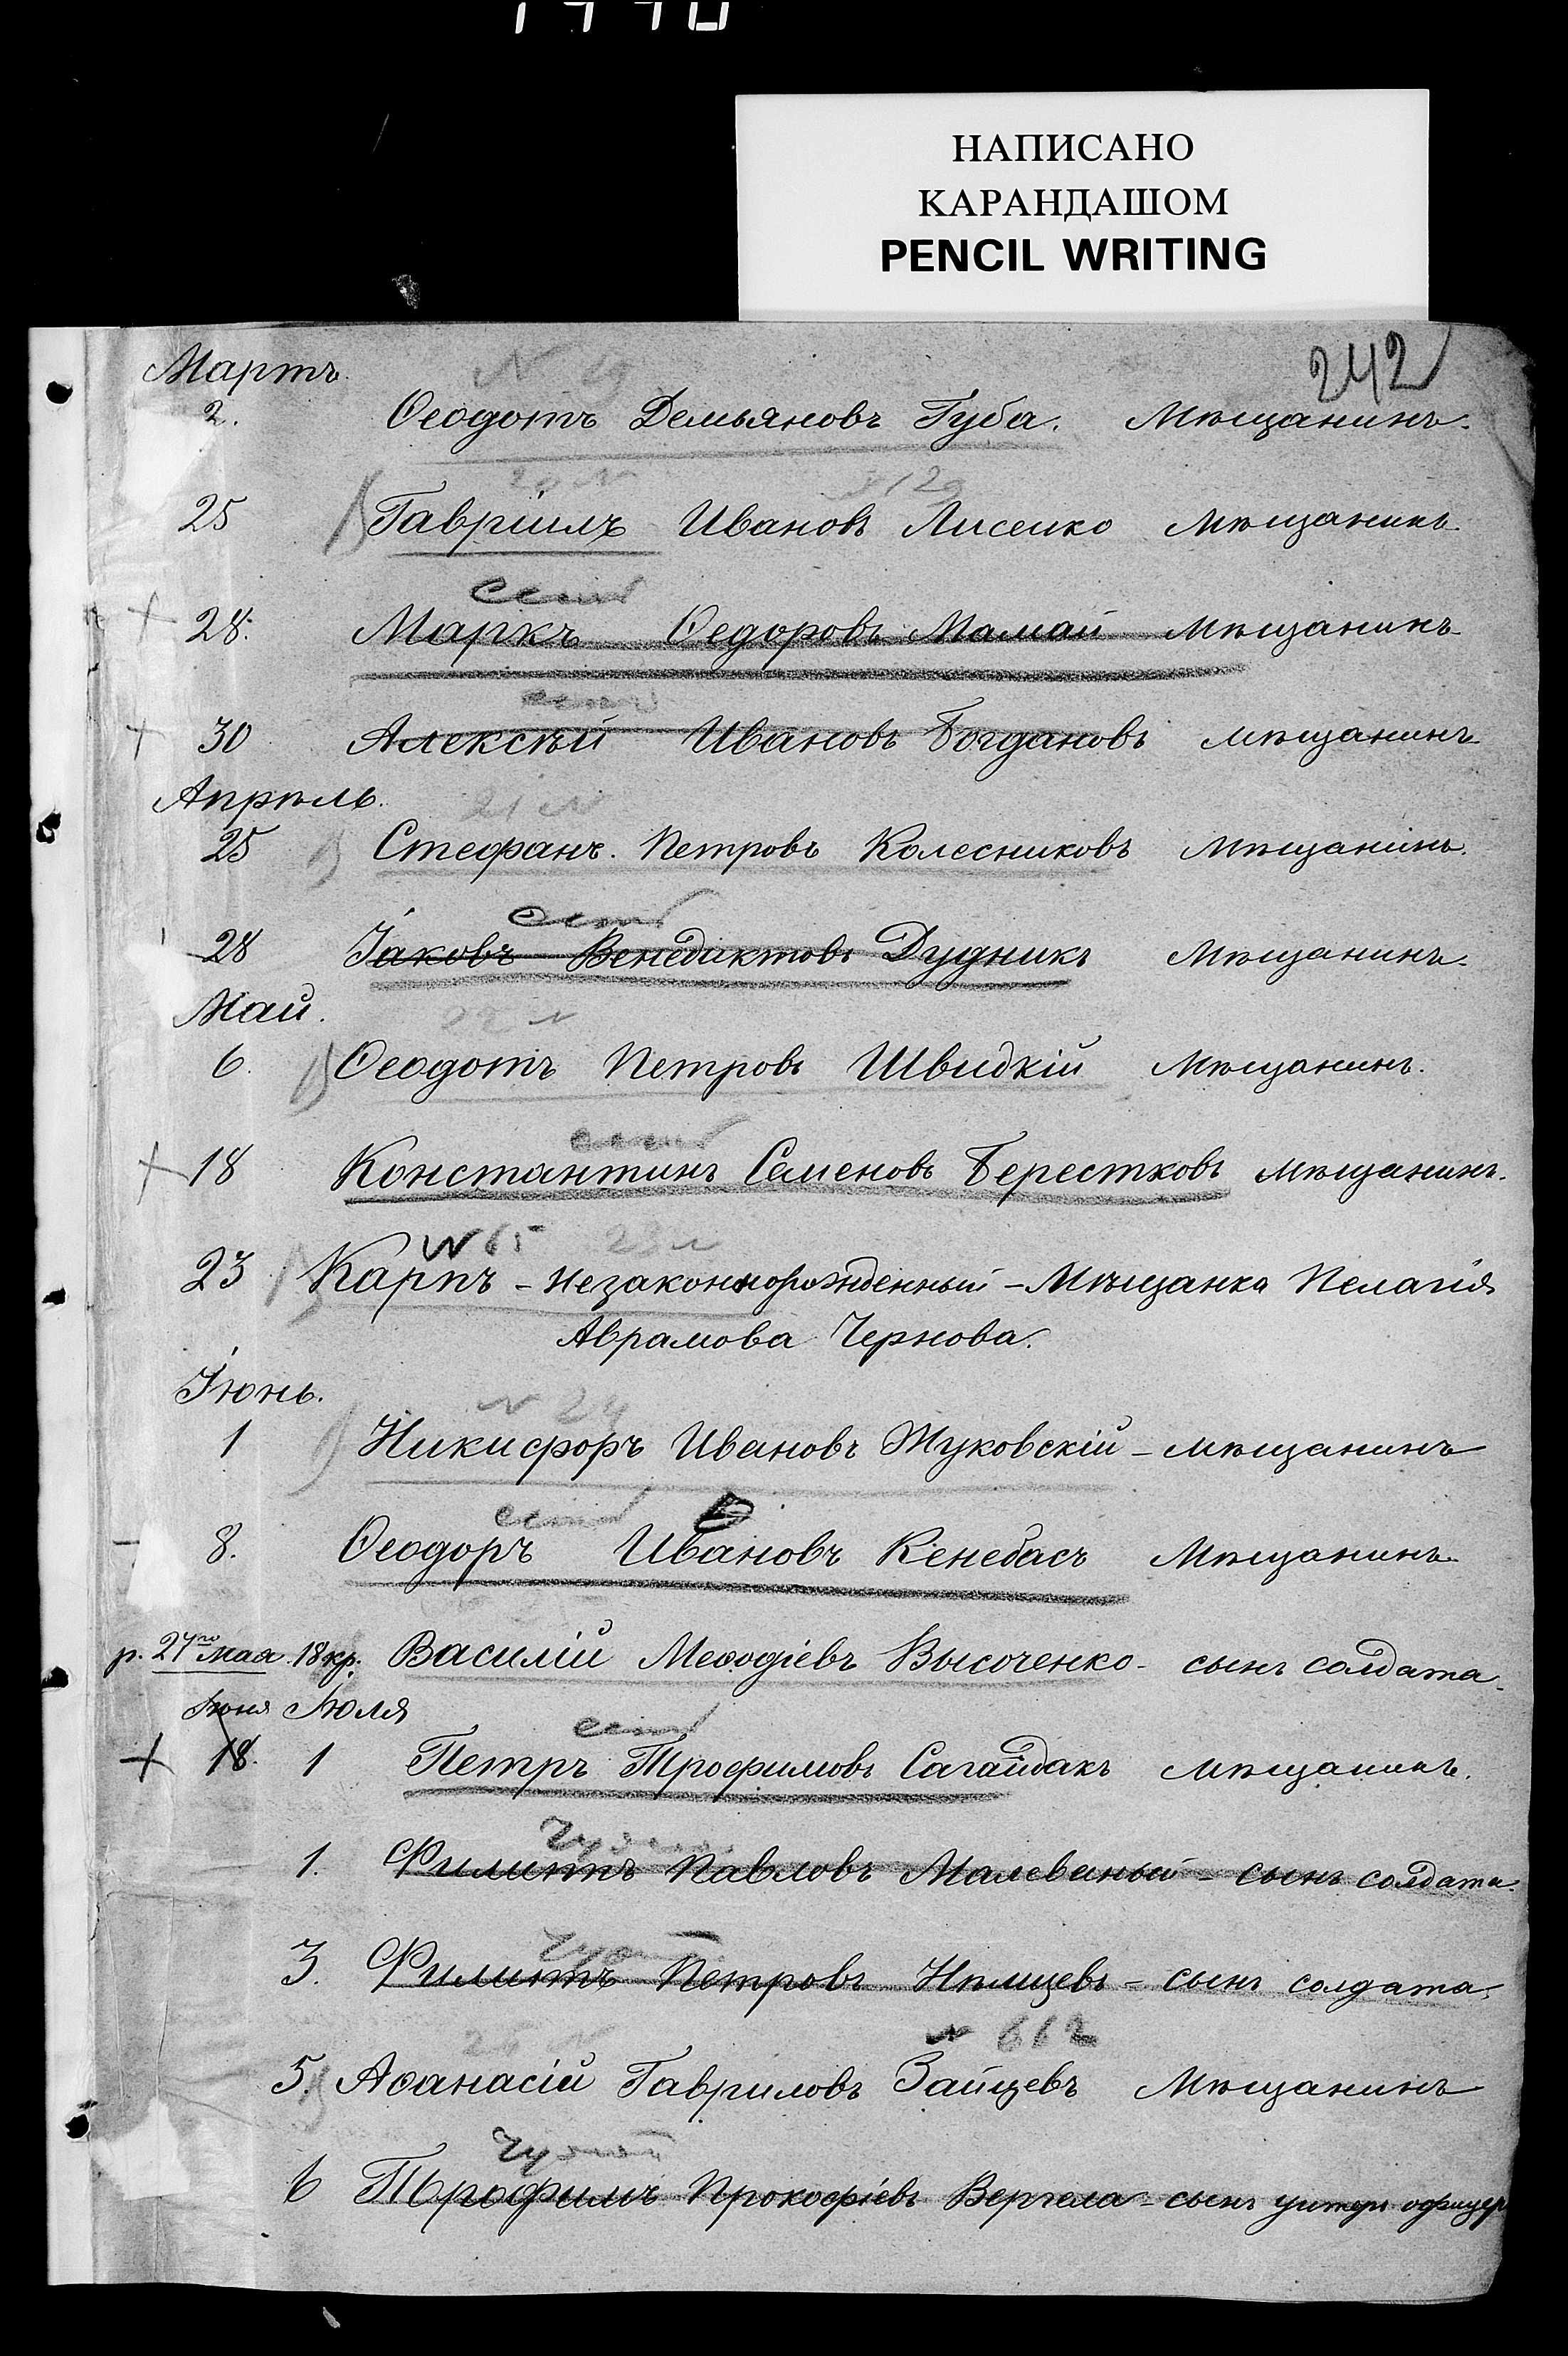 НАПИСАНО
КАРАНДАШОМ
PENCIL WRITING
242
Мартъ
2. Ѳеодотъ Демьяновъ Губа. Мѣщанинъ.
25 Гавріилъ Ивановъ Лисенко Мѣщанинъ.
есть
28. Маркъ Ѳедоровъ Мамай Мѣщанинъ
есть
30 Алексѣй Ивановъ Богдановъ мѣщанинъ
Апрѣль.
21 N
25 Стефанъ. Петровъ Колесниковъ Мѣщанинъ.
есть
28 Іаковъ Венедиктовъ Дудникъ Мѣщанинъ.
Май.
22 N
6. Ѳеодотъ Петровъ Швидкій Мѣщанинъ.
есть
18 Константинъ Семеновъ Берестковъ мѣщанинъ.
N 65 23 N
23 Карпъ - Незаконнорожденный - Мѣщанка Пелагія
Аврамова Чернова.
Іюнь.
N 24
1 Никифоръ Ивановъ Жуковскій - мѣщанинъ
есть
8. Ѳеодоръ Ивановъ Кенебасъ Мѣщанинъ.
р. 27го мая 18 кр. Василій Меѳодіевъ Высоченко - сынъ солдата.
Іюня Іюля
есть
18. 1 Петръ Трофимовъ Сагайдакъ мѣщанинъ.
1. Филиппъ Павловъ Малеваный - сынъ солдата.
3. Филиппъ Петровъ Нѣмцевъ - сынъ солдата.
N 662
5. Аѳанасій Гавриловъ Зайцевъ Мѣщанинъ
Чужой
6 Трофимъ Прокофіевъ Вергела - сынъ унтеръ офицер